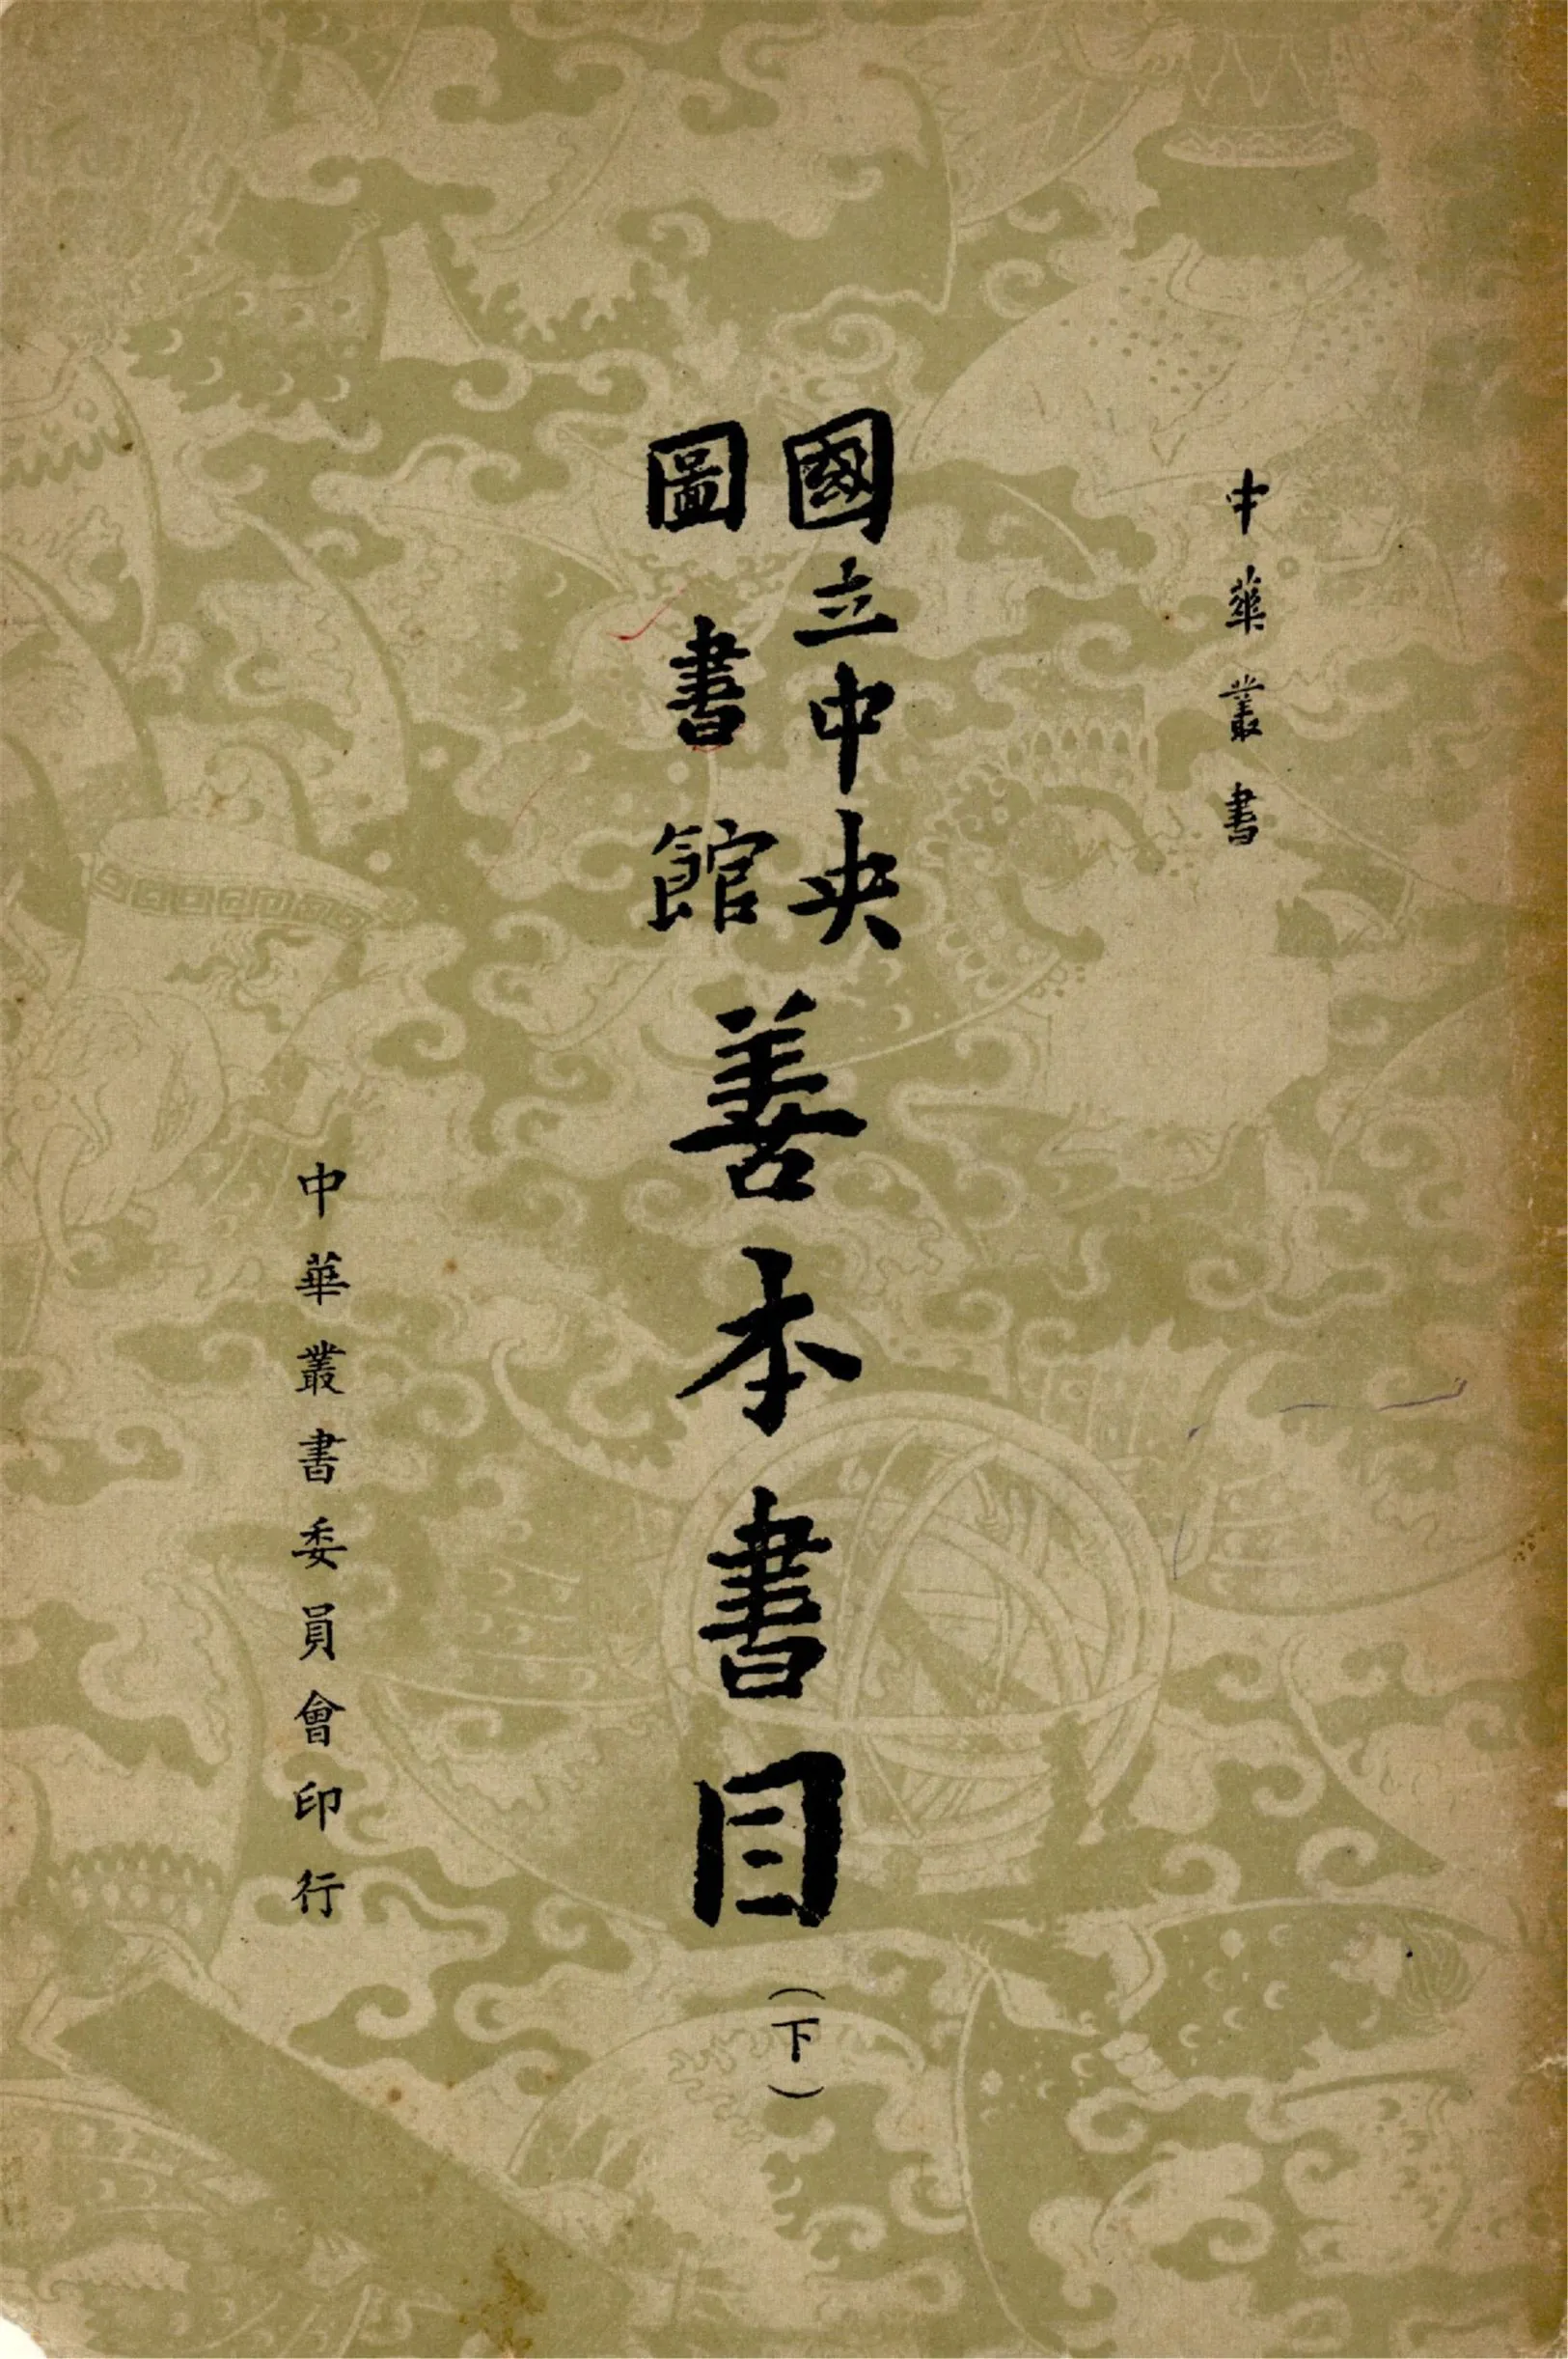 中華叢書
國立中央
圖書館
善本書目
(下)
中華叢書委員會印行